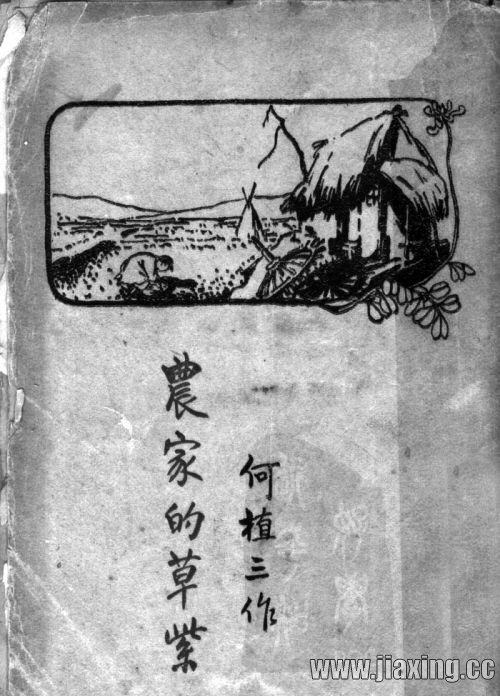 農家的草紫
何植三作
www.jiaxing.cc